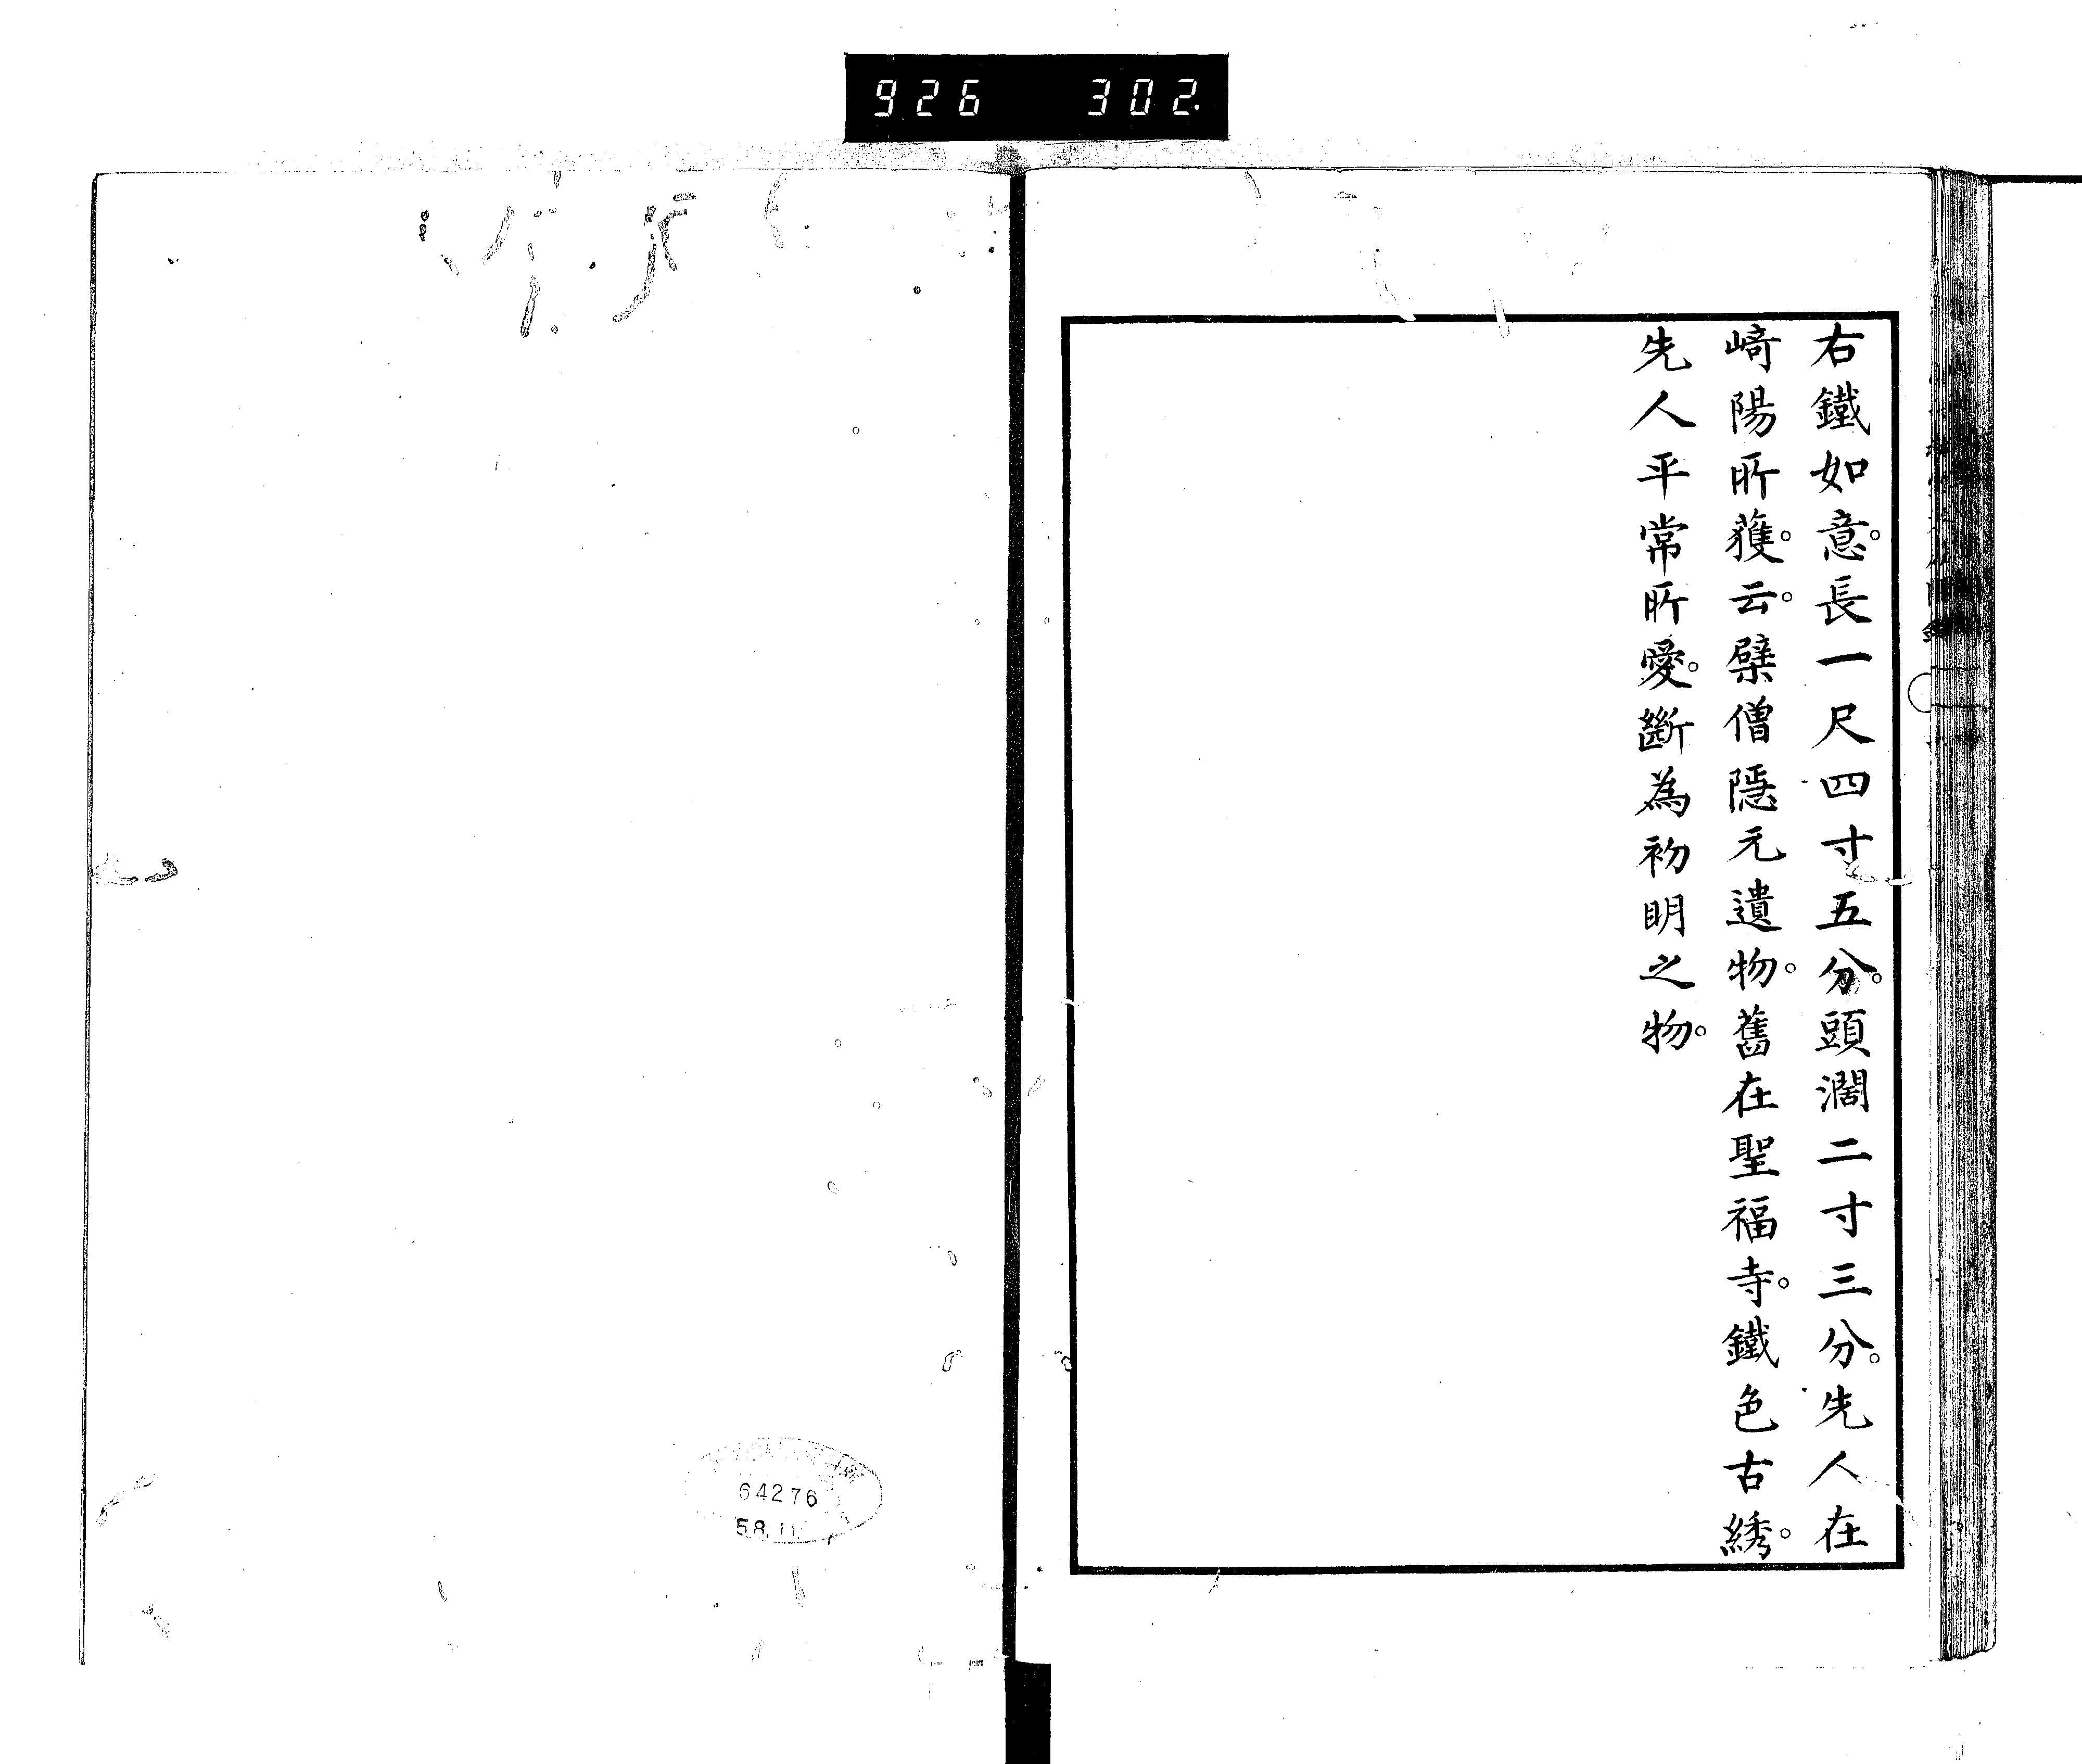 926 302.
右鐵如意。長一尺四寸五分。頭濶二寸三分。先人在
崎陽所獲。云。檗僧隱元遺物。舊在聖福寺。鐵色古綉。
先人平常所愛。斷為初明之物。
64276
58.11